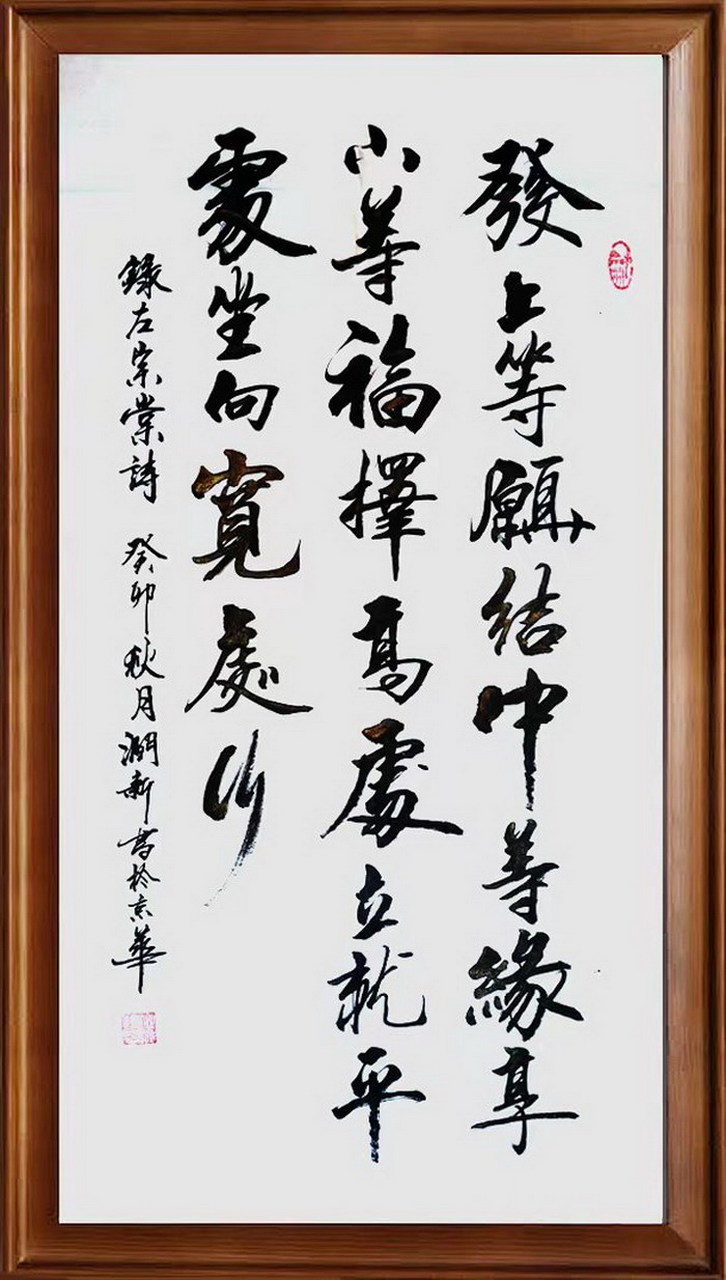 發上等願結中等緣享
小等福擇高處立就平
處坐向寬處行
錄左宗棠詩 癸卯秋月潤新書於京華